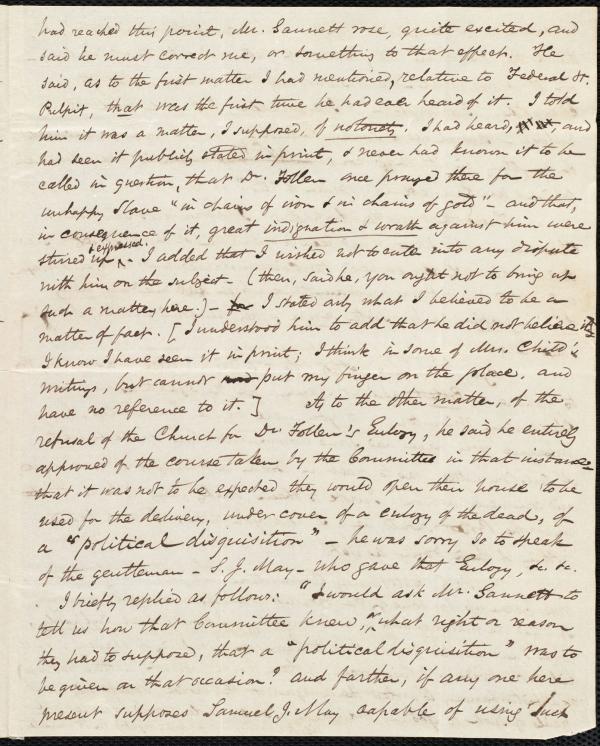 had reached this point, Mr. Gannett rose, quite excited, and
said he must correct me, or something to that effect. He
said, as to the first matter I had mentioned, relative to Federal St.
Pulpit, that was the first time he had ever heard of it. I told
him it was a matter, I supposed, of notoriety. I had heard, and
had seen it publicly stated in print, & never had known it to be
called in question, that Dr. Follen once prayed there for the
unhappy Slave "in chains of iron & in chains of gold" - and that,
in consequence of it, great indignation & wrath against him were
stirred up & expressed. - I added that I wished not to enter into any dispute
with him on the subject - (then, said he, you ought not to bring up
such a matter here.) - I stated only what I believed to be a
matter of fact. [I understood him to add that he did not believe it;
I know I have seen it in print; I think in some of Mrs. Child's
writings, but cannot put my finger on the place, and
have no reference to it.] As to the other matter, of the
refusal of the Church for Dr. Follen's Eulogy, he said he entirely
approved of the course taken by the Committee in that instance -
that it was not to be expected they would open their house to be
used for the delivery, under cover of a eulogy of the dead, of
a "political disquisition" - he was sorry so to speak
of the gentleman - S. J. May - who gave that Eulogy, &c. &c.
I briefly replied as follows: "I would ask Mr. Gannett to
tell us how that Committee knew, or what right or reason
they had to suppose, that a "political disquisition" was to
be given on that occasion? and farther, if any one here
present supposes Samuel J. May capable of using such